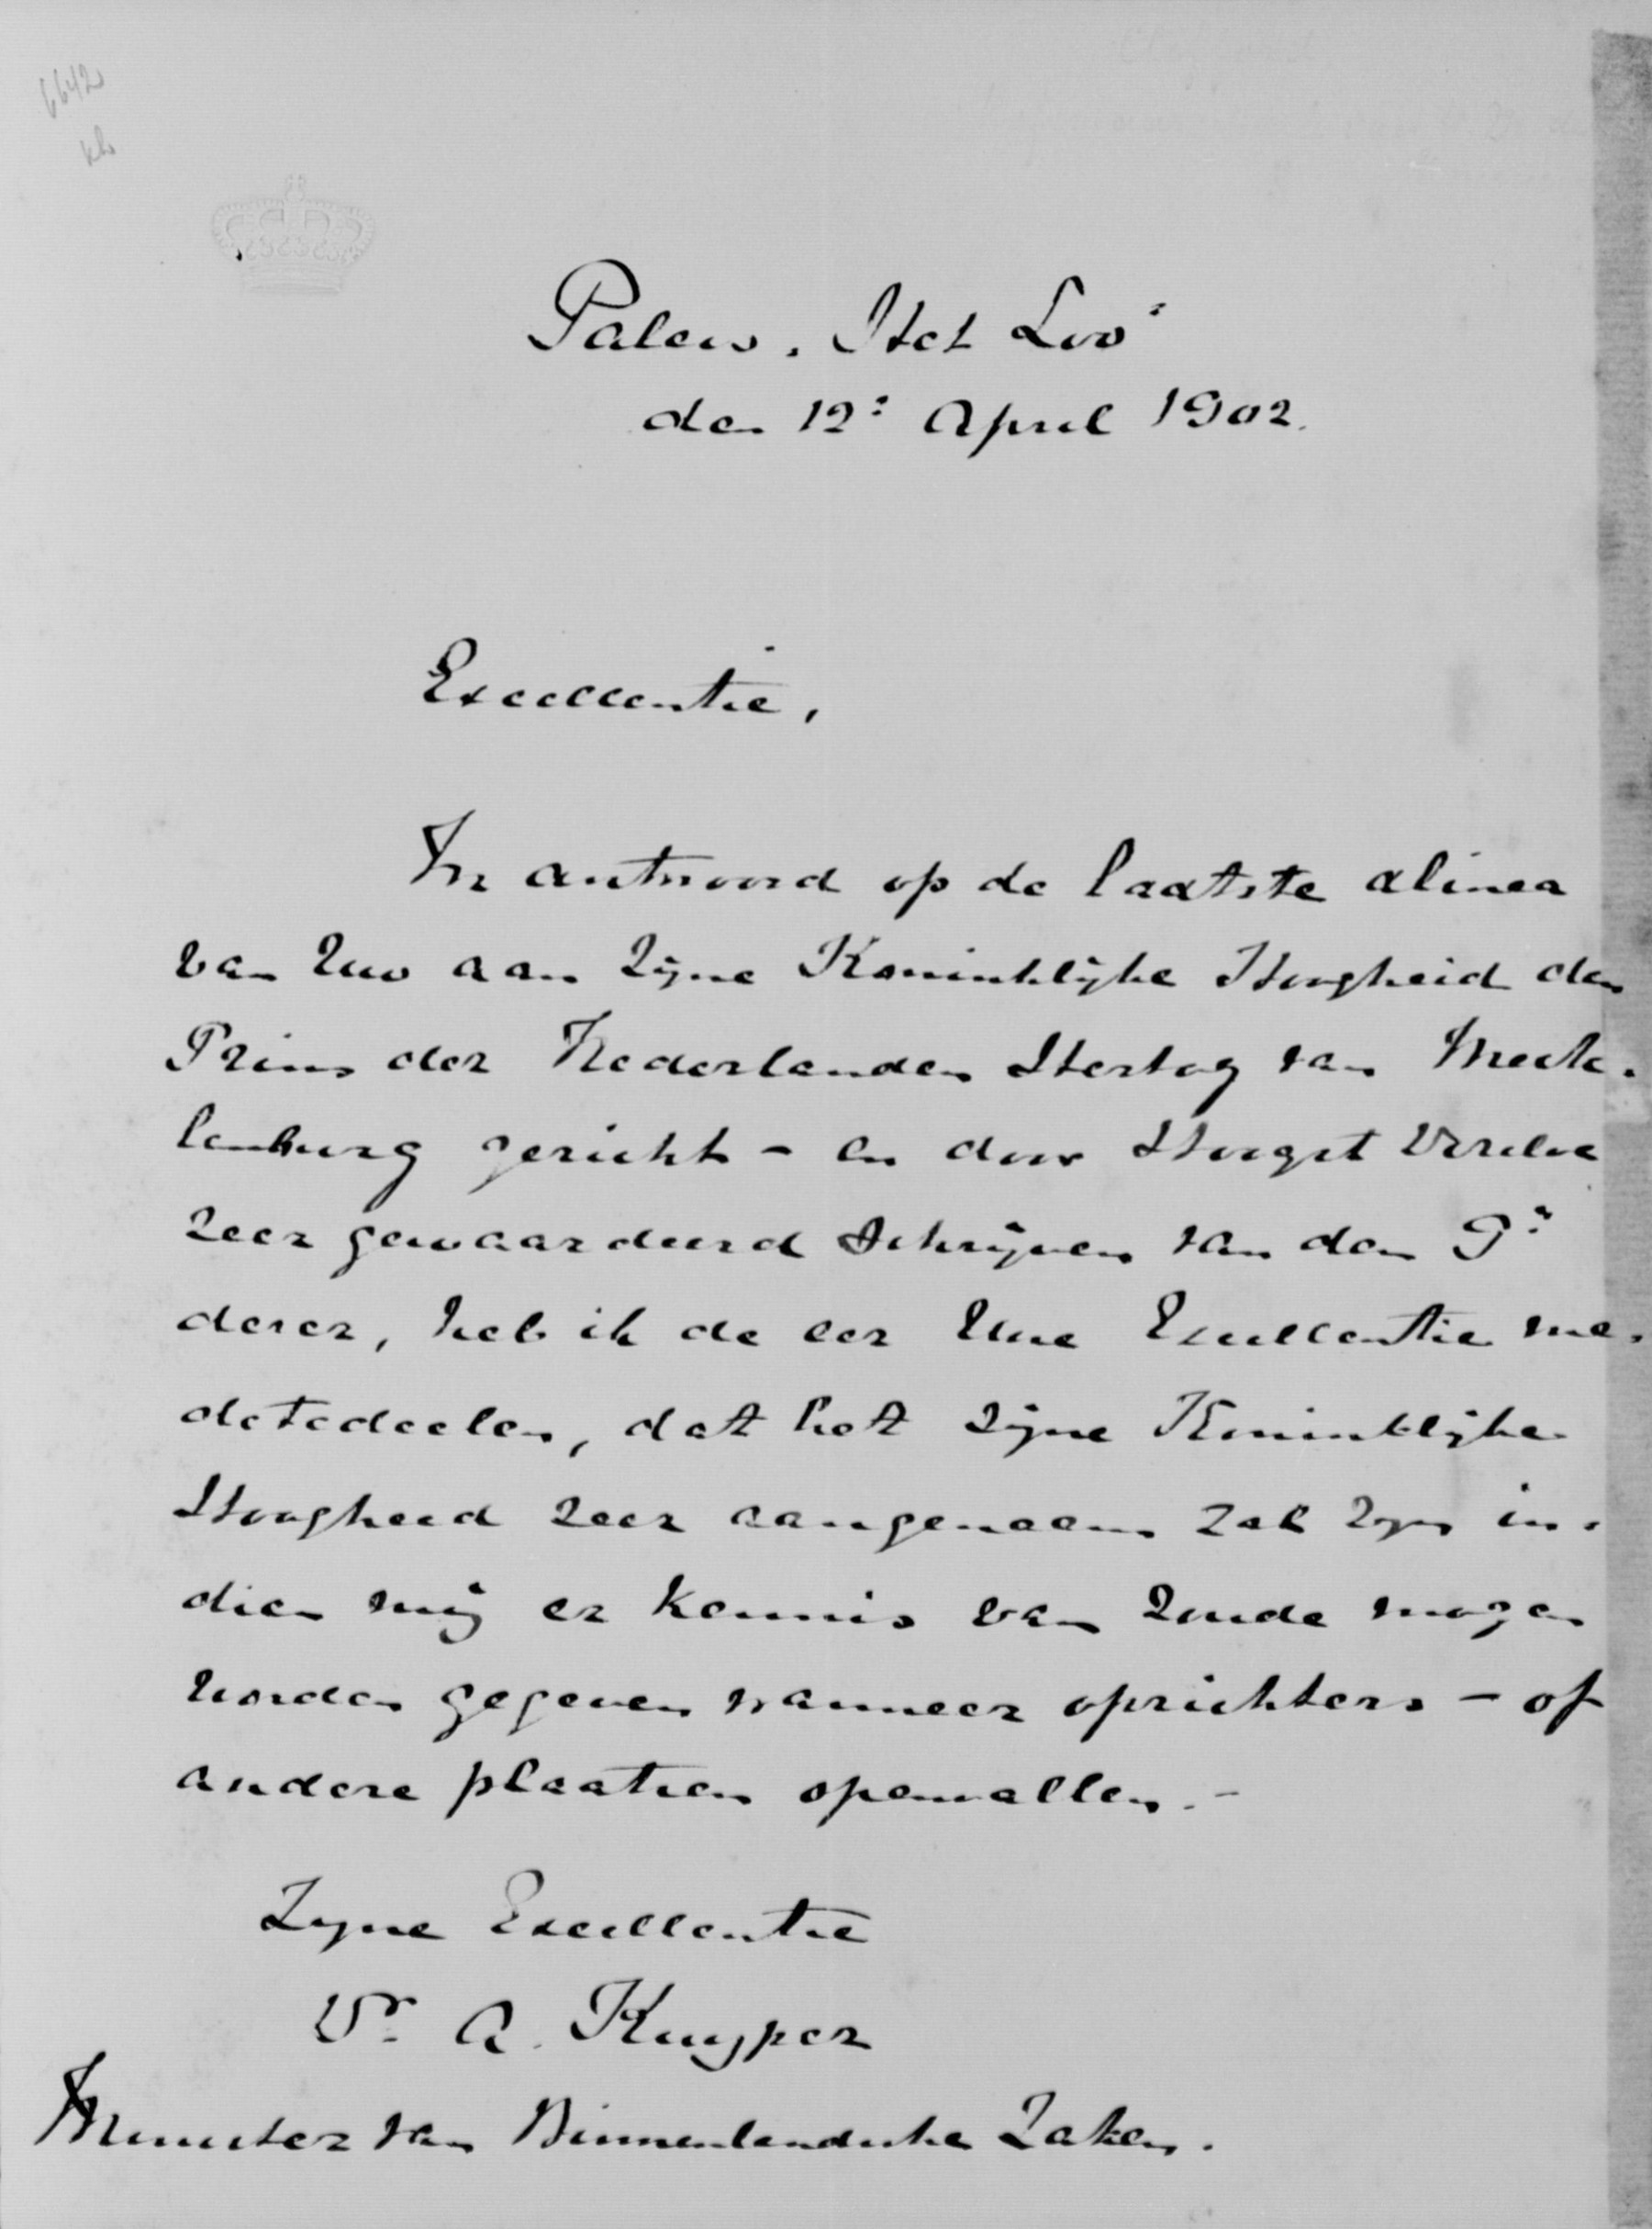 6642
Paleis „Het Loo"
den 12: April 1902.
Excellentie,
In antwoord op de laatste alinea
van Uw aan Zijne Koninklijke Hoogheid den
Prins der Nederlanden Hertog van Meck-
lenburg gericht - en door Hoogst Derzelve
zeer gewaardeerd schrijven van den 9:
dezer, heb ik de eer Uwe Excellentie me-
detedeelen, dat het Zijne Koninklijke
Hoogheid zeer aangenaam zal zijn in-
dien mij er kennis van zoude mogen
worden gegeven wanneer oprichters - of
andere plaatsen openvallen. -
Zijne Excellentie
Dr. A. Kuyper
Minister van Binnenlandsche Zaken.